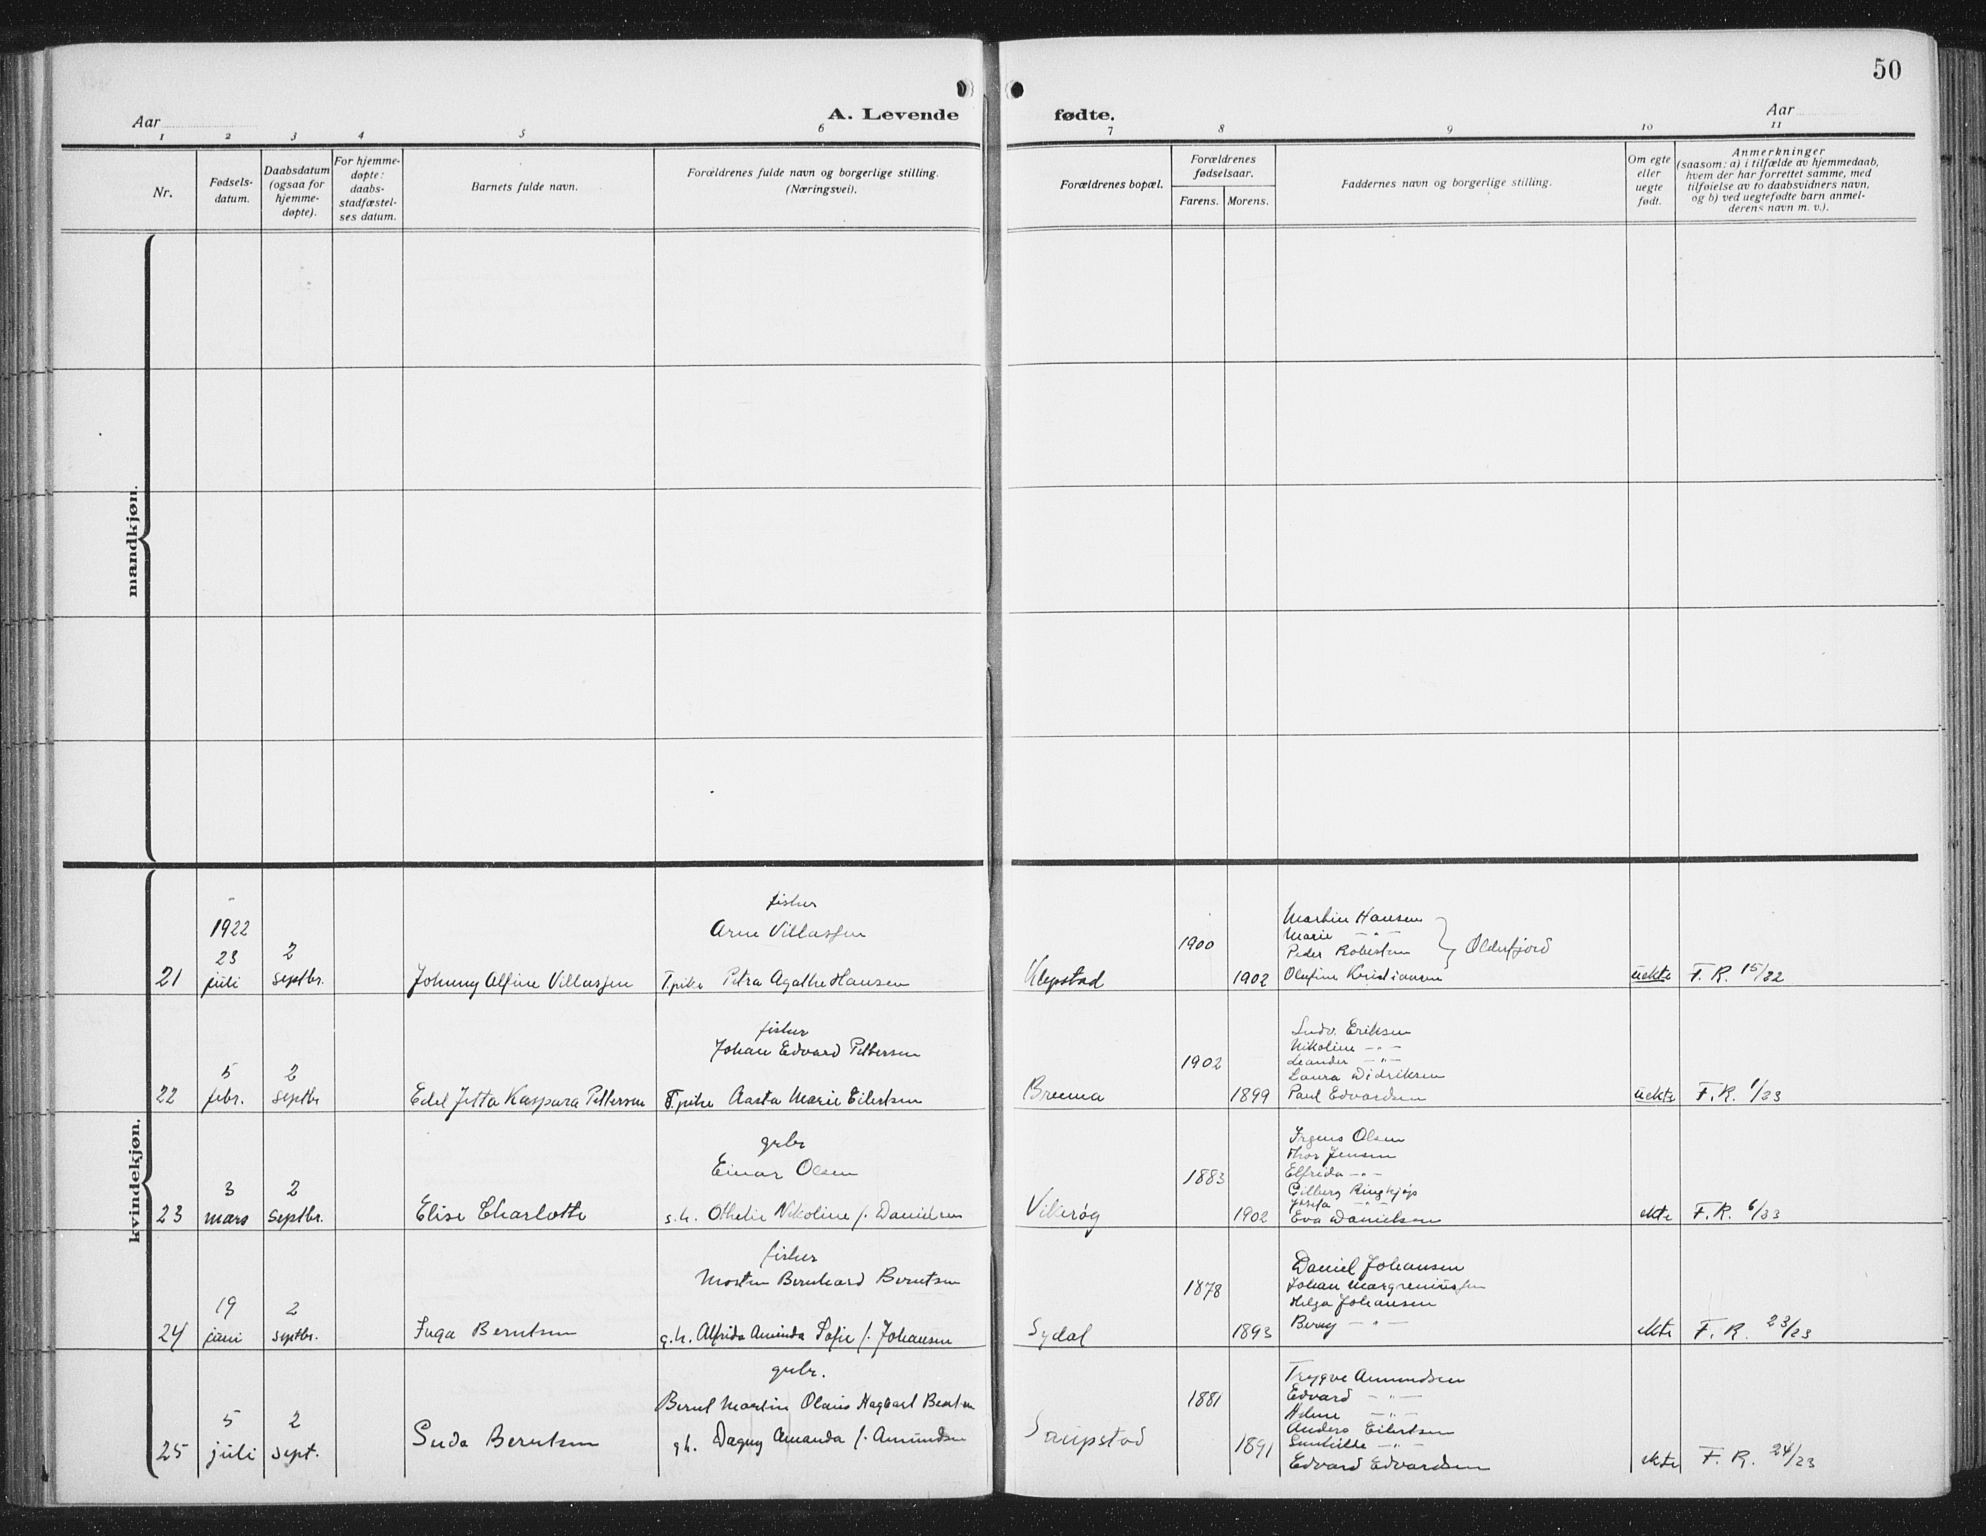 50
Aar
A. Levende
fødte.
Aar
1 2 3 4 5 6 7 8 9 10 11
Nr.
Fødsels-
datum.
Daabsdatum
(ogsaa for
hjemme-
døpte).
For hjemme-
døpte:
daabs-
stadfæstel-
ses datum.
Barnets fulde navn.
Forældrenes fulde navn og borgerlige stilling.
(Næringsvei).
Forældrenes bopæl.
Forældrenes
fødselsaar.
Farens. Morens.
Faddernes navn og borgerlige stilling.
Om egte
eller
uegte
født.
Anmerkninger
(saasom: a) i tilfælde av hjemmedaab,
hvem der har forrettet samme, med
tilføielse av to daabsvidners navn,
og b) ved uegtefødte barn anmel-
derens navn m. v.).
mandkjøn.
kvindekjøn.
21
1922
23
juli
2
septbr.
Johnny Alfine Villassen
fisker
Arne Villassen
T. pike Petra Agathe Hansen
Klepstad
1900
1902
Martin Hansen
Marie -"-
Peder Robertsen
Olufine Kristiansen
Olderfjord
uekte
F. R. 15/22
22
5
febr.
2
septbr
Edel Jetta Kaspara Pettersen
fisker
Johan Edvard Pettersen
T. pike Aasta Marie Eilertsen
Brenna
1902
1899
Ludv. Eriksen
Nikoline -"-
Leander -"-
Laura Didriksen
Paul Edvardsen
uekte
F. R. 1/23
23
3
mars
2
septbr.
Elise Charlotte
grbr
Einar Olsen
g.h. Othelie Nikoline f. Danielsen
Vikerøg
1883
1902
Irgens Olsen
Thor Jensen
Elfrida -"-
Gilberg
-"-
Eva Danielsen
ekte
F. R. 6/23
24
19
juni
2
septbr.
Inga Berntsen
fisker
Morten Bernhard Berntsen
g.h. Alfrida Aminda Sofie f. Johansen
Sydal
1878
1893
Daniel Johansen
Johan
Helga Johansen
Berny -"-
ekte
F. R. 23/23
25
5
juli
2
sept.
Berntsen
grbr.
Bernt Martin Olaus Hagbart Berntsen
gh. Dagny Amanda f. Amundsen
Saupstad
1881
1891
Trygve Amundsen
Edvard -"-
Helene -"-
Anders Eilertsen
-"-
Edvard Edvardsen
ekte
F. R. 24/23